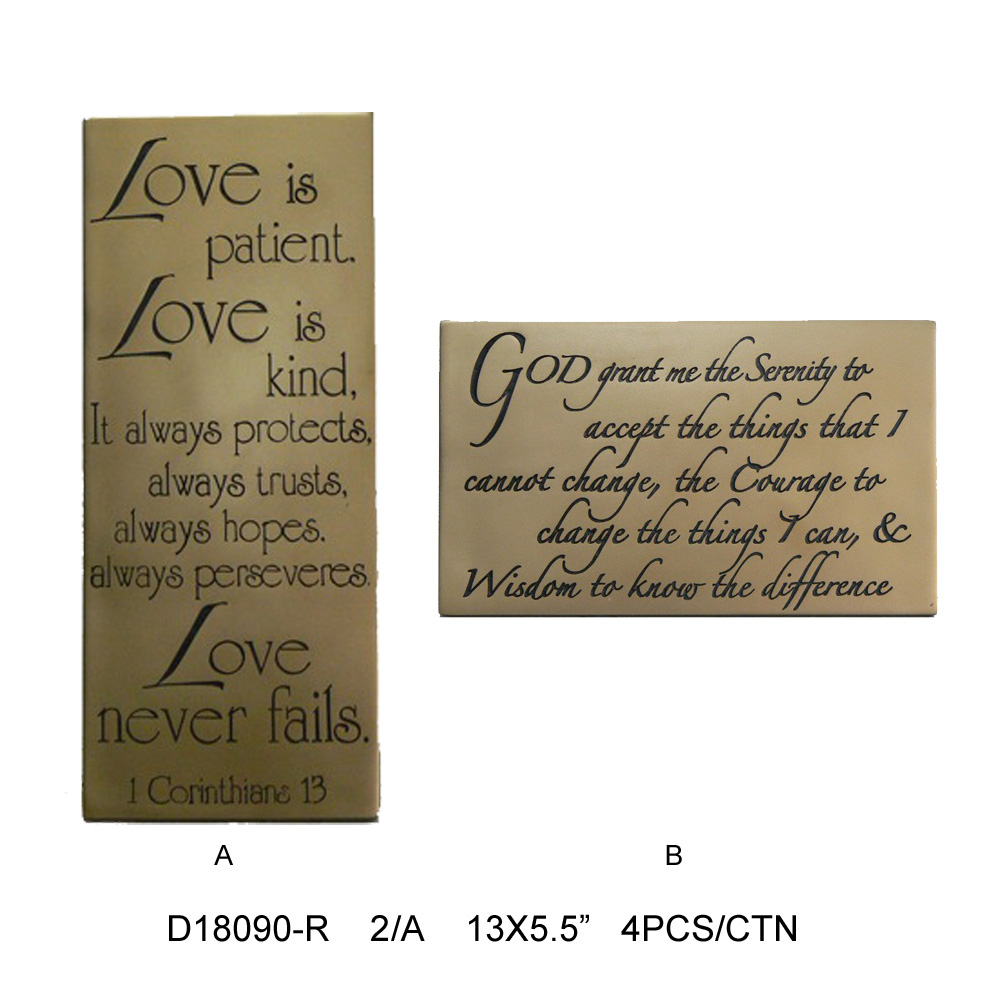 Love is
patient.
Love is
kind,
It always protects,
always trusts,
always hopes.
always perseveres.
Love
never fails.
1 Corinthians 13
GOD grant me the Serenity to
accept the things that I
cannot change, the Courage to
change the things I can, &
Wisdom to know the difference
A
B
D18090-R 2/A 13X5.5” 4PCS/CTN